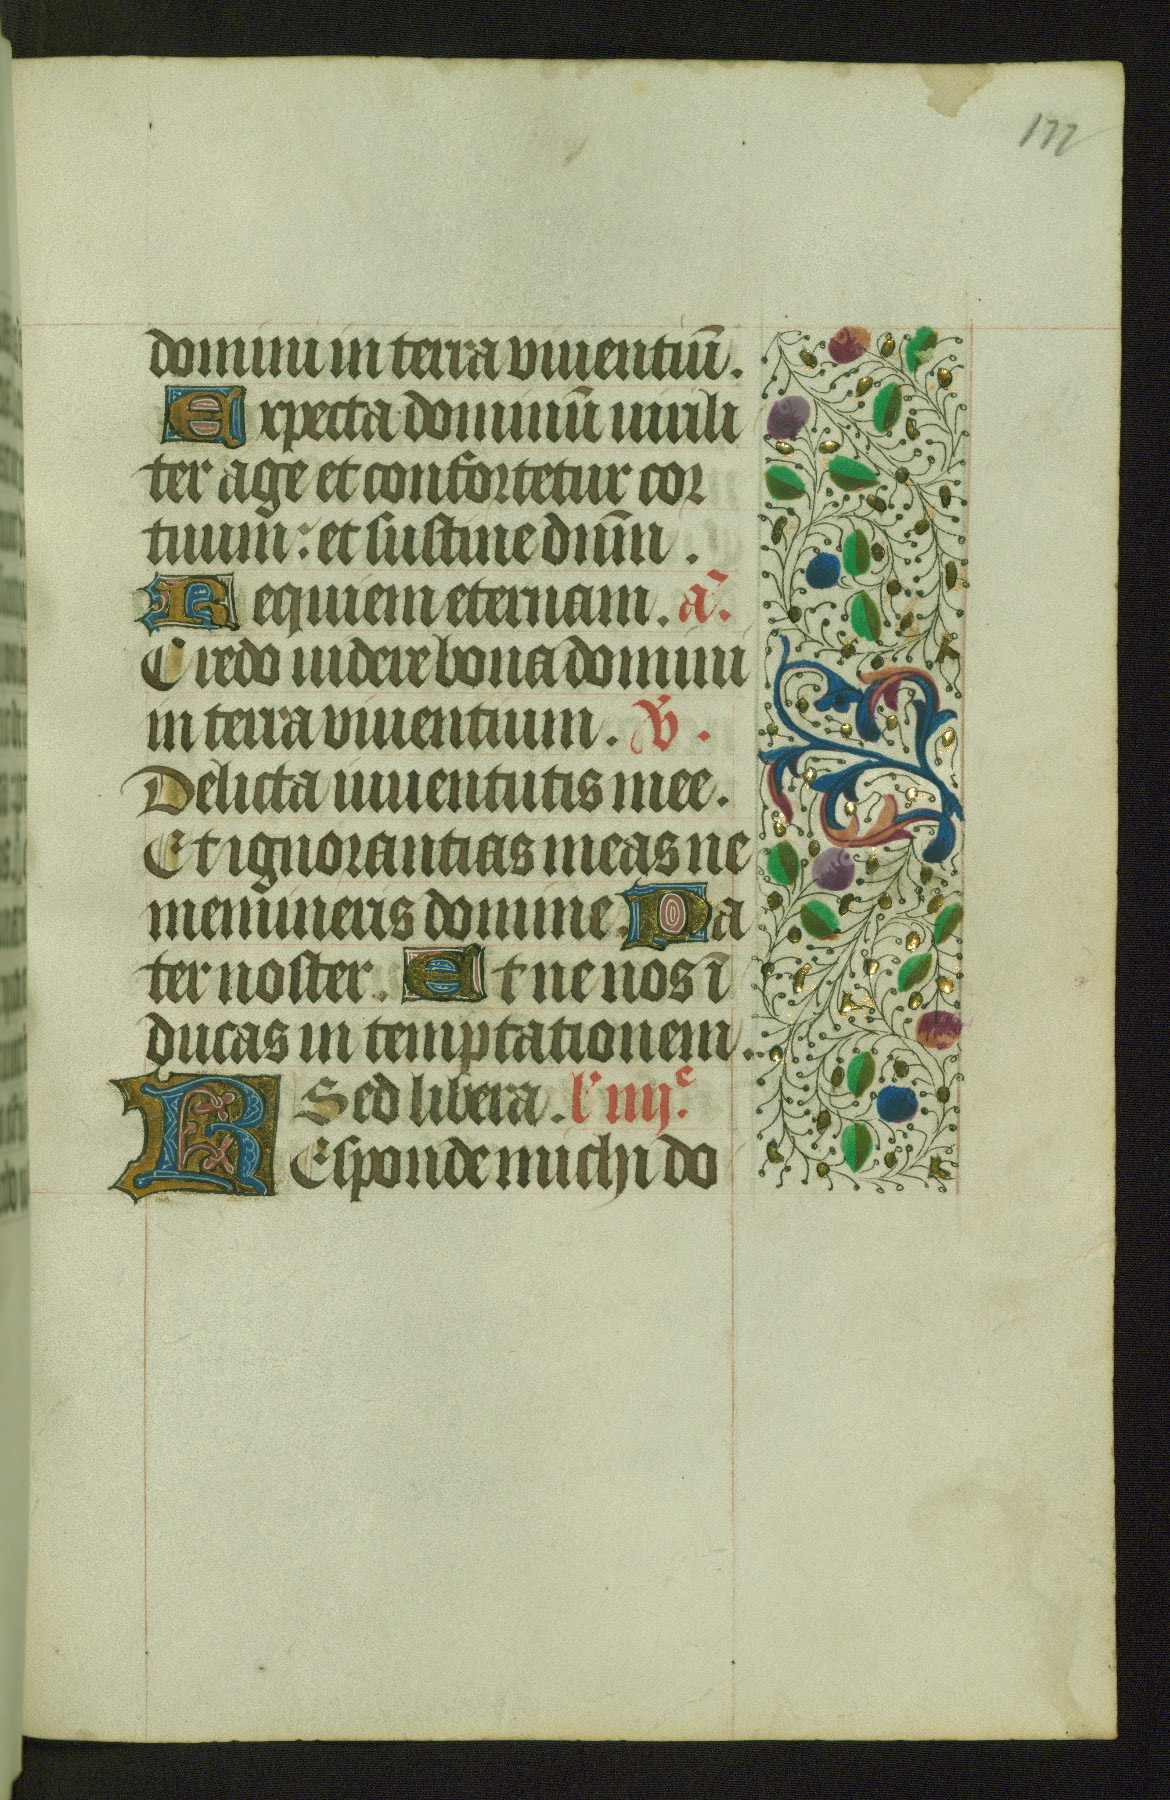 177
domini in terra viuentiū.
Expecta dominū uirili
ter age et confortetur cor
tuum: et sustine dnm̄.
Requiem eternam. an̄.
Credo uidere bona domini
in terra viuentium. V̄.
Delicta iuuentutis mee.
Et ignorantias meas ne
memineris domine. Pa
ter noster. Et ne nos ī
ducas in temptationem.
Sed libera. l' iiijᵉ.
Responde michi do